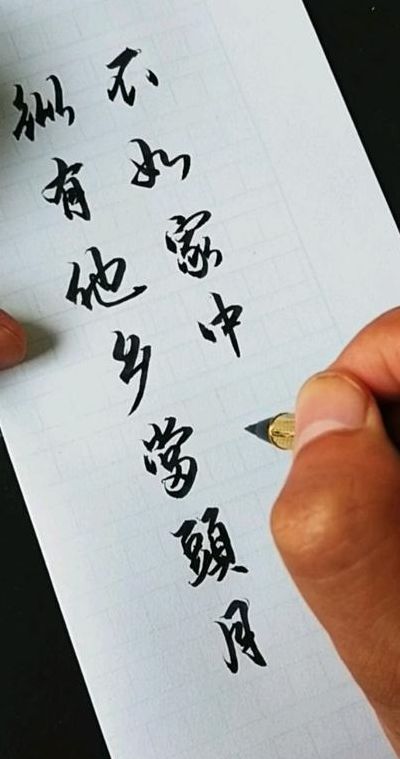 纵有他乡當頭月
不如家中